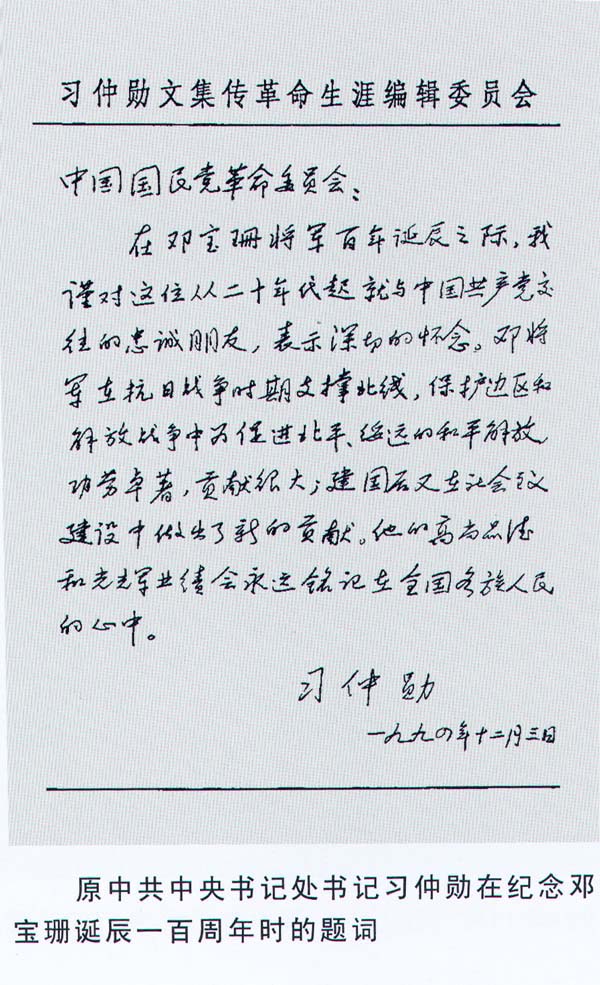 习仲勋文集传革命生涯编辑委员会
中国国民党革命委员会：
在邓宝珊将军百年诞辰之际，我
谨对这位从二十年代起就与中国共产党交
往的忠诚朋友，表示深切的怀念。邓将
军在抗日战争时期支撑北线，保护边区和
解放战争中为促进北平、绥远的和平解放
功劳卓著，贡献很大；建国后又在社会主义
建设中做出了新的贡献。他的高尚品德
和光辉业绩会永远铭记在全国各族人民
的心中。
习仲勋
一九九四年十二月三日
原中共中央书记处书记习仲勋在纪念邓
宝珊诞辰一百周年时的题词